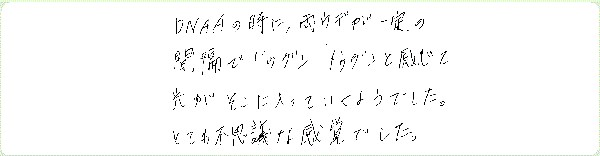 DNAAの時に、両ウデが一定の
間隔でドックン ドックンと感じて
光がそこに入っていくようでした。
とても不思議な感覚でした。